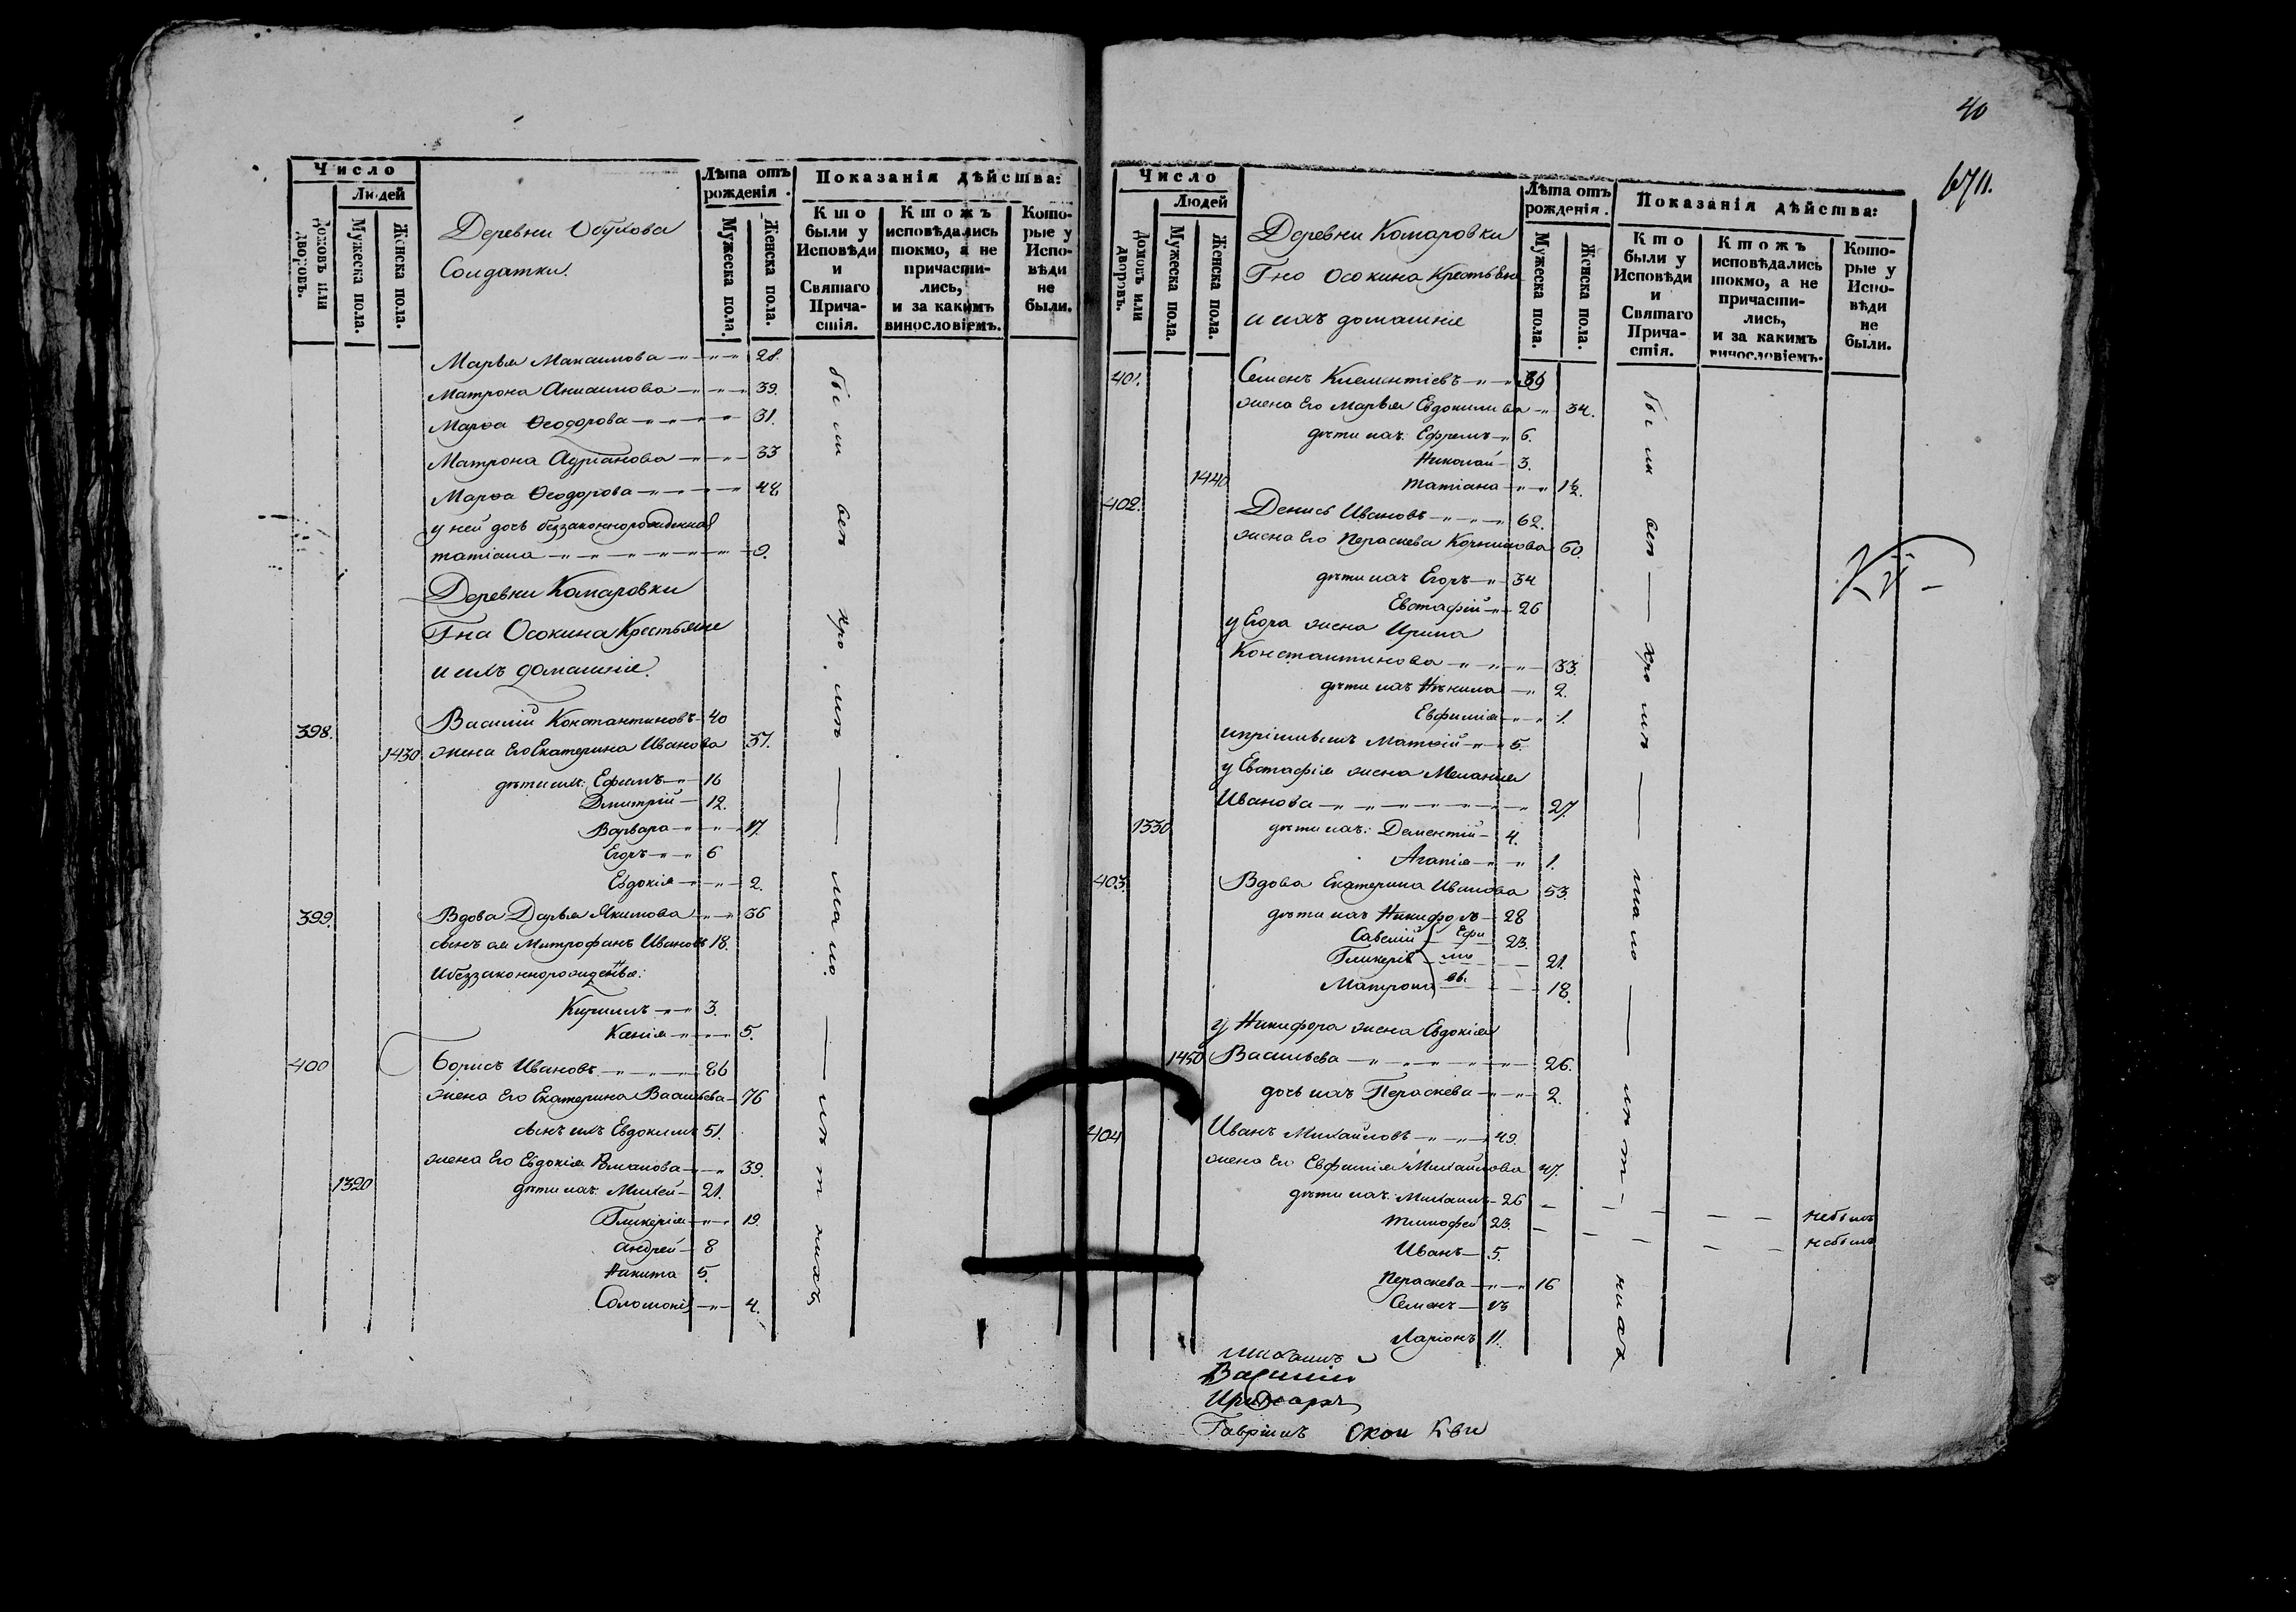 Число
Людей
Домовъ или дворовъ.
Мужеска пола.
Женска пола.
Деревни Обухова
Солдатки.
Лѣта отъ рожденія.
Мужеска пола.
Женска пола.
Показанія дѣйства:
Кто были у Исповѣди и Святаго Прича-стія.
Ктожъ исповѣдались токмо, а не причасти-лись, и за какимъ винословіемъ.
Кото-рые у Испо-вѣди не были.
Марѳа Максимова 28.
Матрона Анисимова 39.
Марѳа Ѳеодорова 31.
Матрона Адріанова 33
Марѳа Ѳеодорова 48
у ней дочь беззаконнорожденная
татіана 9.
Деревни Комаровки
Гна Осокина Крестьяне
и ихъ домашніе.
398. Василій Константиновъ 40
1430 жена Его Екатерина Иванова 37.
дѣти ихъ: Ефимъ 16
Дмитрій 12.
Варвара 17.
Егоръ 6
Евдокія 2.
399. Вдова Дарья Якимова 36
сынъ ея Митрофанъ Ивановъ 18.
и беззаконнорожденные:
Кирилъ 3.
Ксенія 5.
400 Борисъ Ивановъ 86
жена Его Екатерина Васильева 76
сынъ ихъ Евдокимъ 51.
жена Его Евдокія Романова 39.
1320 дѣти ихъ: Михей 21.
Гликерія 19.
андрей 8
Никита 5.
Соломонія 4.
были всѣ кромѣ мало лѣтнихъ
40
671.
Число
Людей
Домовъ или дворовъ.
Мужеска пола.
Женска пола.
Деревни Комаровки
Гно Осокина Крестьяне
и ихъ домашніе
Лѣта отъ рожденія.
Мужеска пола.
Женска пола.
Показанія дѣйства:
Кто были у Исповѣди и Святаго Прича-стія.
Ктожъ исповѣдались токмо, а не причасти-лись, и за какимъ винословіемъ.
Кото-рые у Испо-вѣди не были.
401. Семенъ Клементіевъ
жена Его Марья Евдокимова 34.
дѣти ихъ: Ефремъ 6.
Николай 3.
1440 татіана 1½.
402. Денисъ Ивановъ 62.
жена Его Пераскева 60.
дѣти ихъ Егоръ 34
Евстафій 26
у Егора жена Ирина
Константинова 33.
дѣти ихъ 2.
Евфимія 1.
Матвѣй 5.
у Евстафія жена Меланія
Иванова 27.
1330 дѣти ихъ: Дементій 4.
Агапія 1.
403. Вдова Екатерина Иванова 53.
дѣти ихъ Никифоръ 28
Савелій Ефи 23.
Гликерія мо 21.
Матрона вы 18.
у Никифора жена Евдокія
1450 Васильева 26.
дочь ихъ Пераскева 2.
404 Иванъ Михайловъ 49.
жена Его Евфимія Михайлова 47.
дѣти ихъ: Михаилъ 26 небылъ
тимофей 23. небылъ
Иванъ 5.
Пераскева 16
Семенъ 13
Ларіонъ 11.
были всѣ кромѣ мало лѣтнихъ
Михаилъ
Василій
Гавріилъ